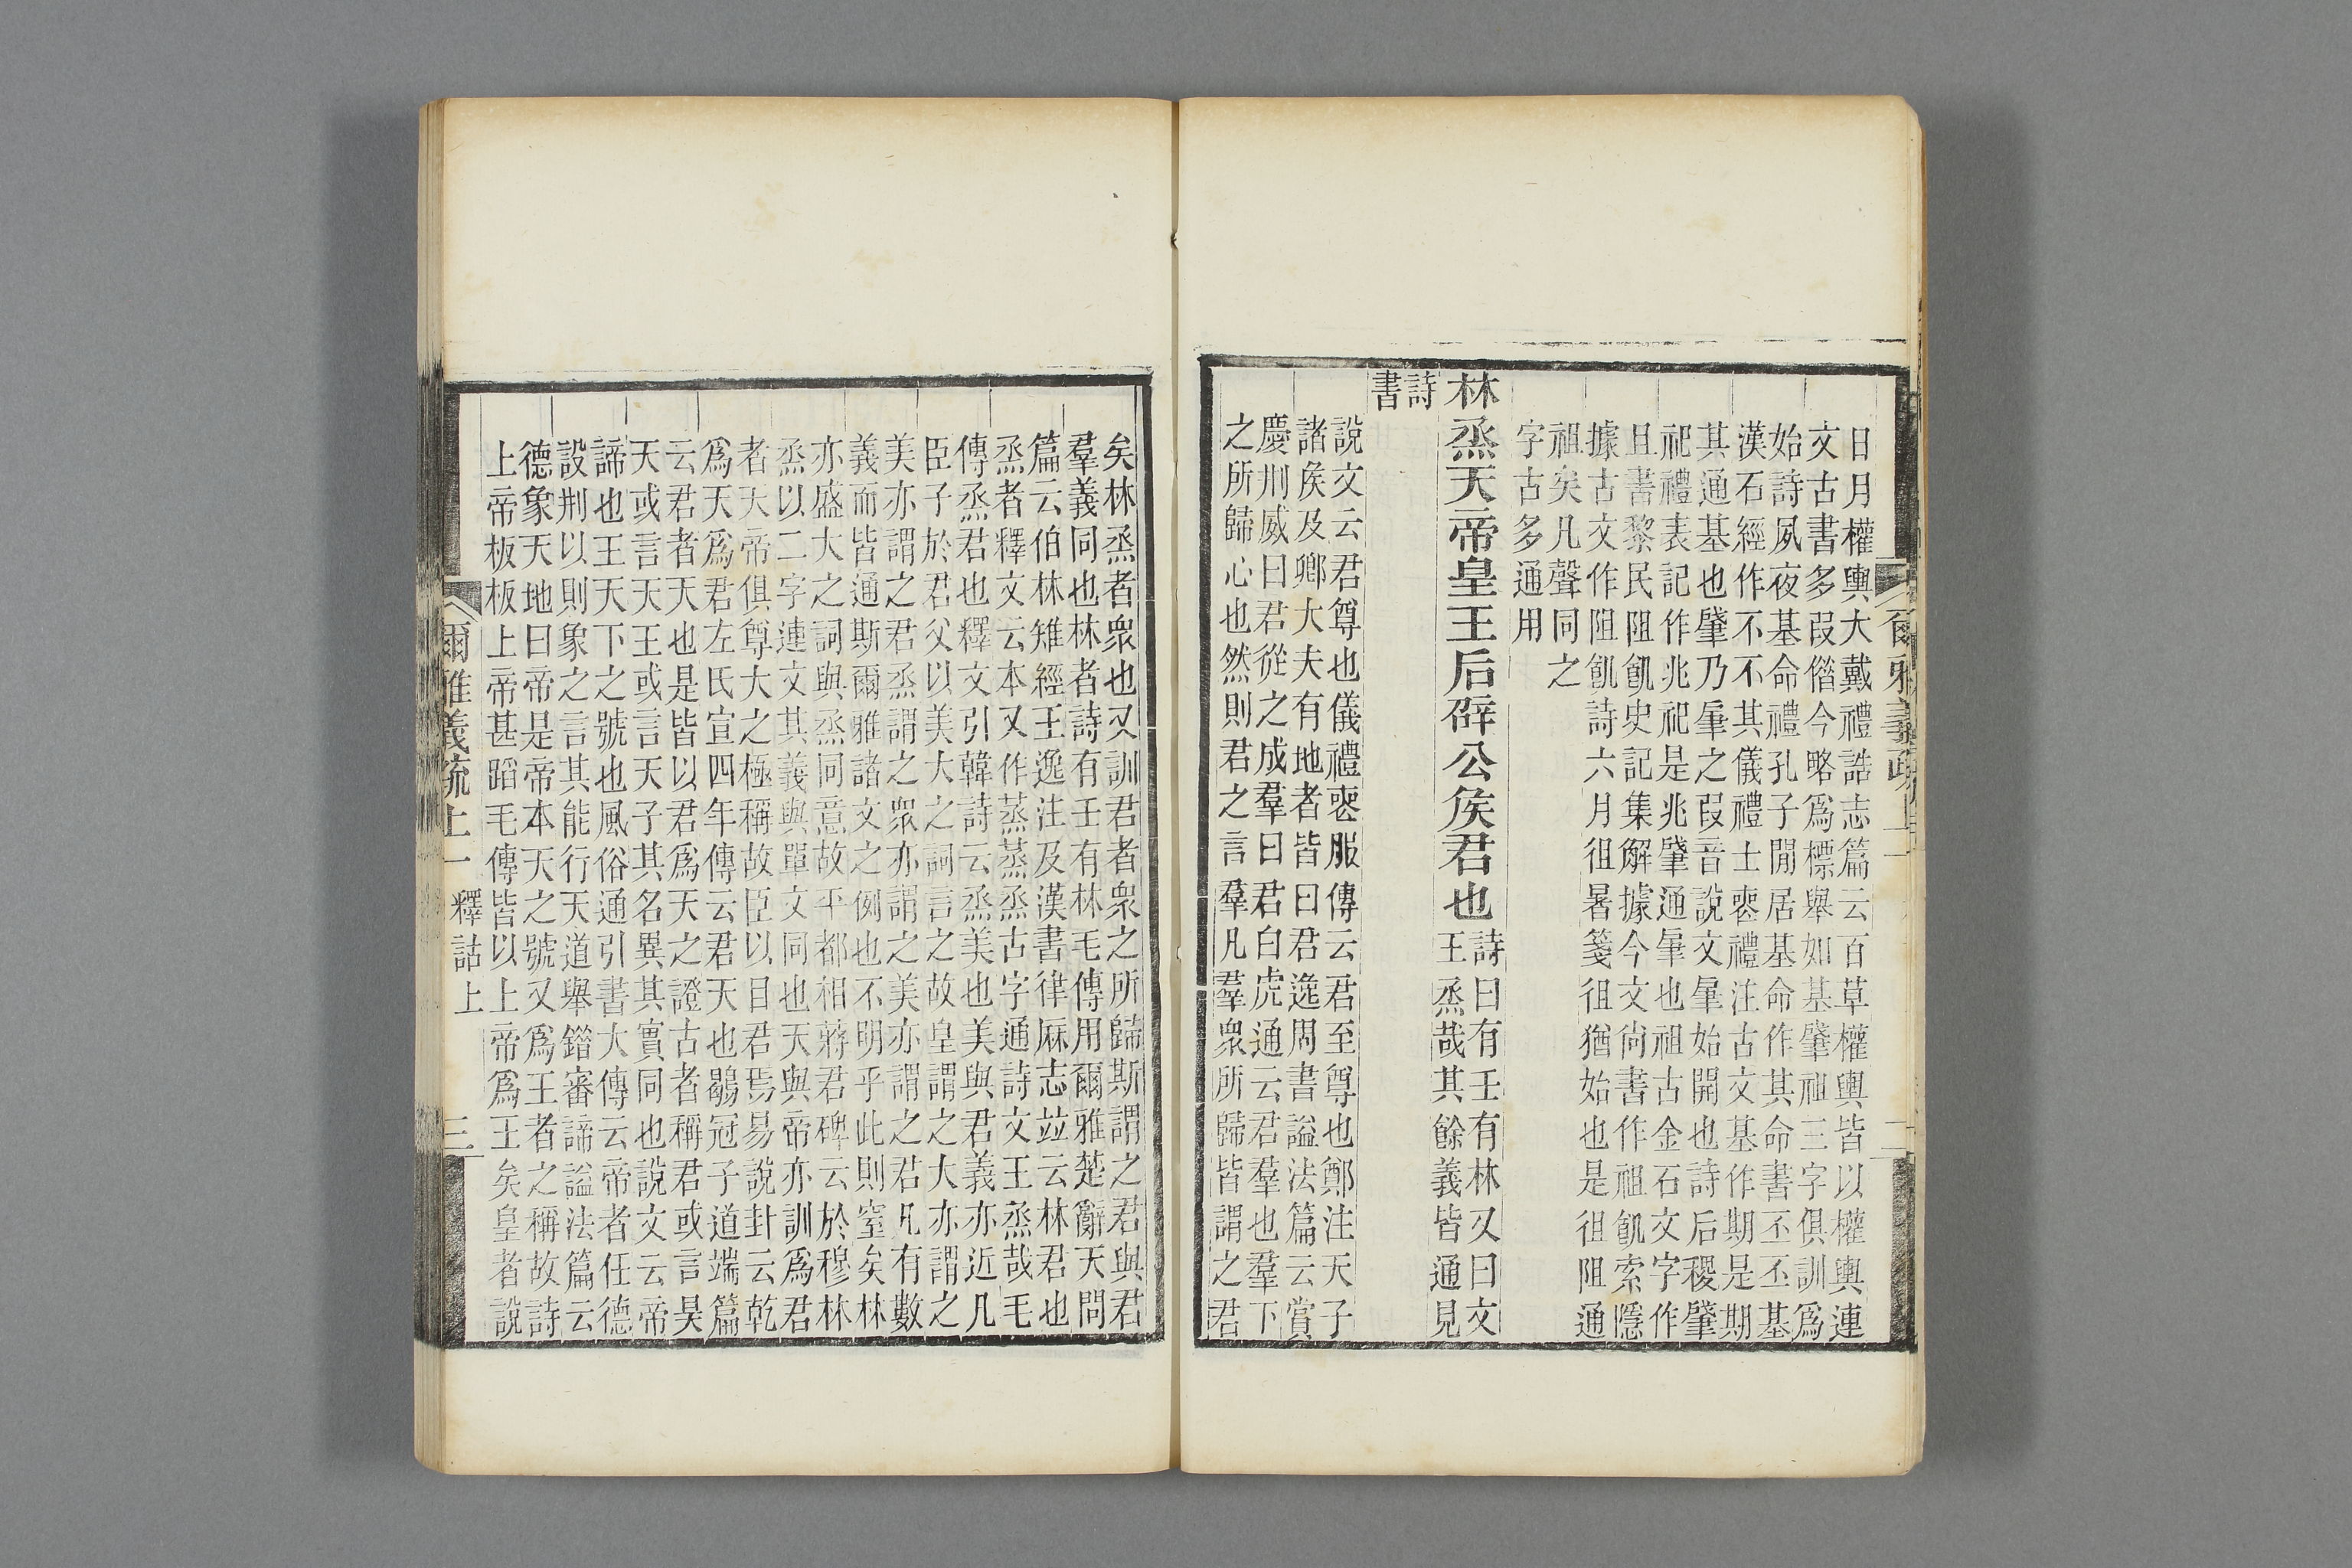 爾雅義疏上一
二
日月權輿大戴禮誥志篇云百草權輿皆以權輿連
文古書多叚僭今略為標舉如基肇祖三字俱訓爲
始詩夙夜基命禮孔子閒居基命作其命書丕丕基
漢石經作不不其儀禮士喪禮注古文基作期是期
其通基也肇乃肈之叚音說文肁始開也詩后稷肇
祀禮表記作兆祀是兆肇通肈也祖古金石文字作
且書黎民阻飢史記集解據今文尙書作祖飢索隱
據古文作阻飢詩六月徂暑箋徂猶始也是徂阻通
祖矣凡聲同之
字古多通用
林烝天帝皇王后辟公矦君也
詩曰有壬有林又曰文
王烝哉其餘義皆通見
詩
書
說文云君尊也儀禮喪服傳云君至尊也鄭注天子
諸矦及卿大夫有地者皆曰君逸周書謚法篇云賞
慶刑威曰君從之成羣曰君白虎通云君羣也羣下
之所歸心也然則君之言羣凡羣眾所歸皆謂之君
矣林烝者眾也又訓君者眾之所歸斯謂之君與君
羣義同也林者詩有壬有林毛傳用爾雅楚辭天問
篇云伯林雉經王逸注及漢書律厤志竝云林君也
烝者釋文云本又作蒸蒸烝古字通詩文王烝哉毛
傳烝君也釋文引韓詩云烝美也美與君義亦近凡
臣子於君父以美大之詞言之故皇謂之大亦謂之
美亦謂之君烝謂之眾亦謂之美亦謂之君凡有數
義而皆通斯爾雅諸文之例也不明乎此則窒矣林
亦盛大之詞與烝同意故平都相蔣君碑云於穆林
烝以二字連文其義與單文同也天與帝亦訓爲君
者天帝俱尊大之極稱故臣以目君焉易說卦云乾
爲天爲君左氏宣四年傳云君天也鶡冠子道端篇
云君者天也是皆以君爲天之證古者稱君或言昊
天或言天王或言天子其名異其實同也說文云帝
諦也王天下之號也風俗通引書大傳云帝者任德
設荆以則象之言其能行天道舉錯審諦謚法篇云
德象天地曰帝是帝本天之號又爲王者之稱故詩
上帝板板上帝甚蹈毛傳皆以上帝爲王矣皇者說
爾雅義疏上一
釋詁上
三